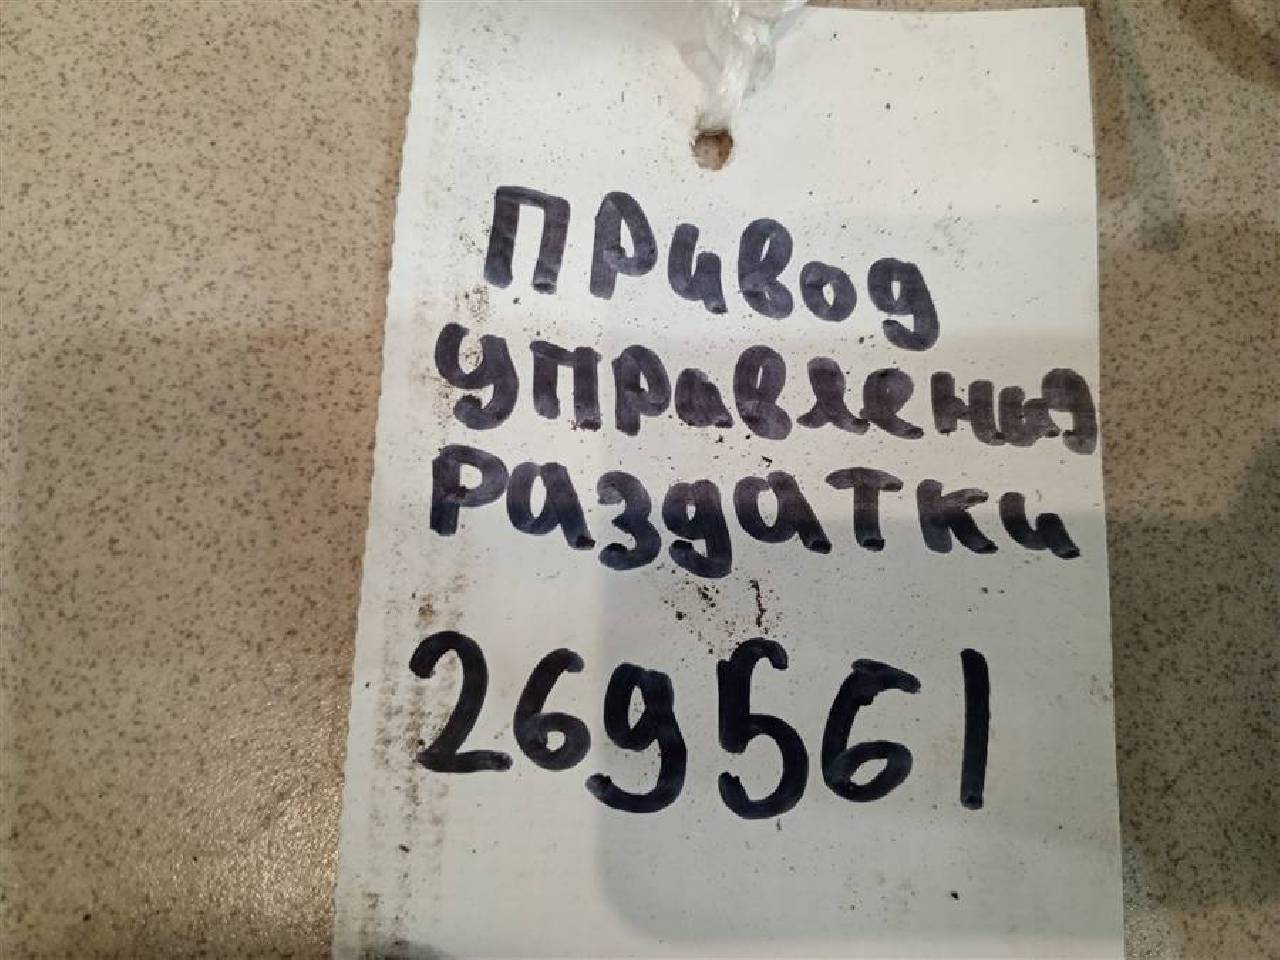 Привод
управления
раздатки
269561